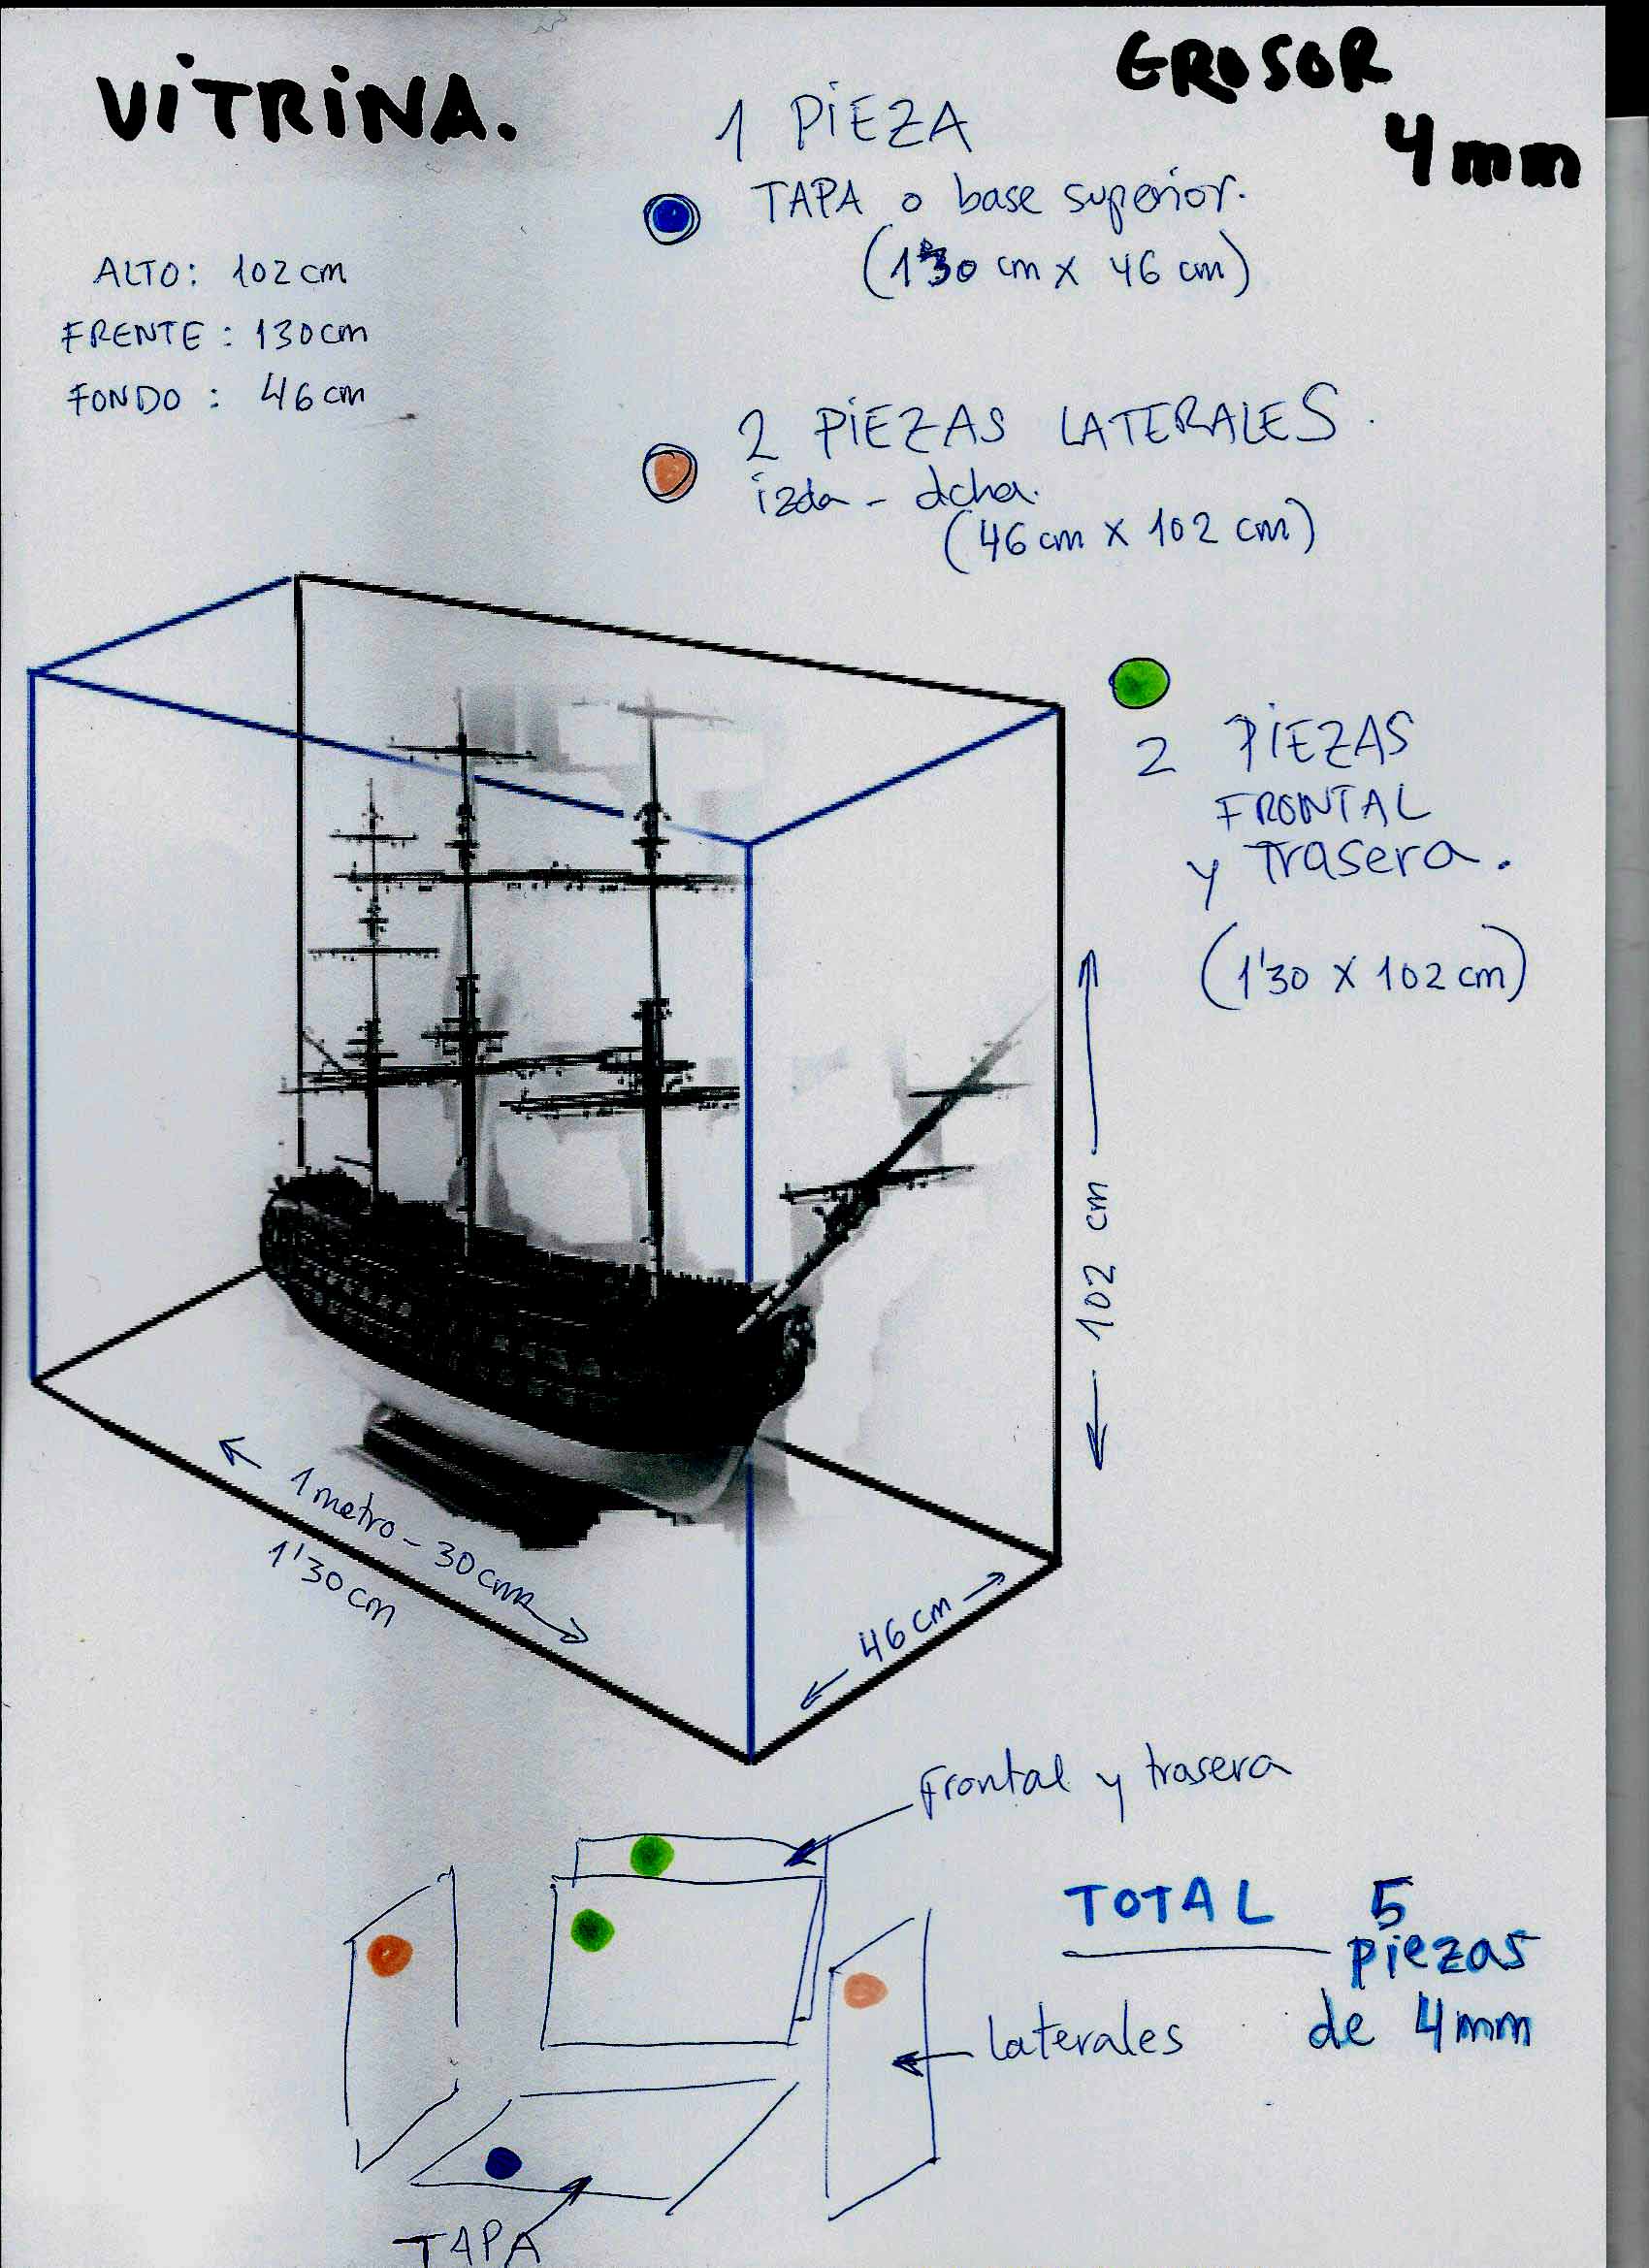 VITRINA.
GROSOR
4mm
ALTO: 102 cm
FRENTE: 130cm
FONDO: 46 cm
1 PIEZA
TAPA o base superior.
(1'30 cm x 46 cm)
2 PIEZAS LATERALES.
izda - dcha.
(46 cm x 102 cm)
2 PIEZAS
FRONTAL
y Trasera.
(1'30 x 102 cm)
102 cm
1 metro - 30cm
1'30 cm
46 cm
Frontal y trasera
TOTAL 5
piezas
de 4mm
laterales
TAPA